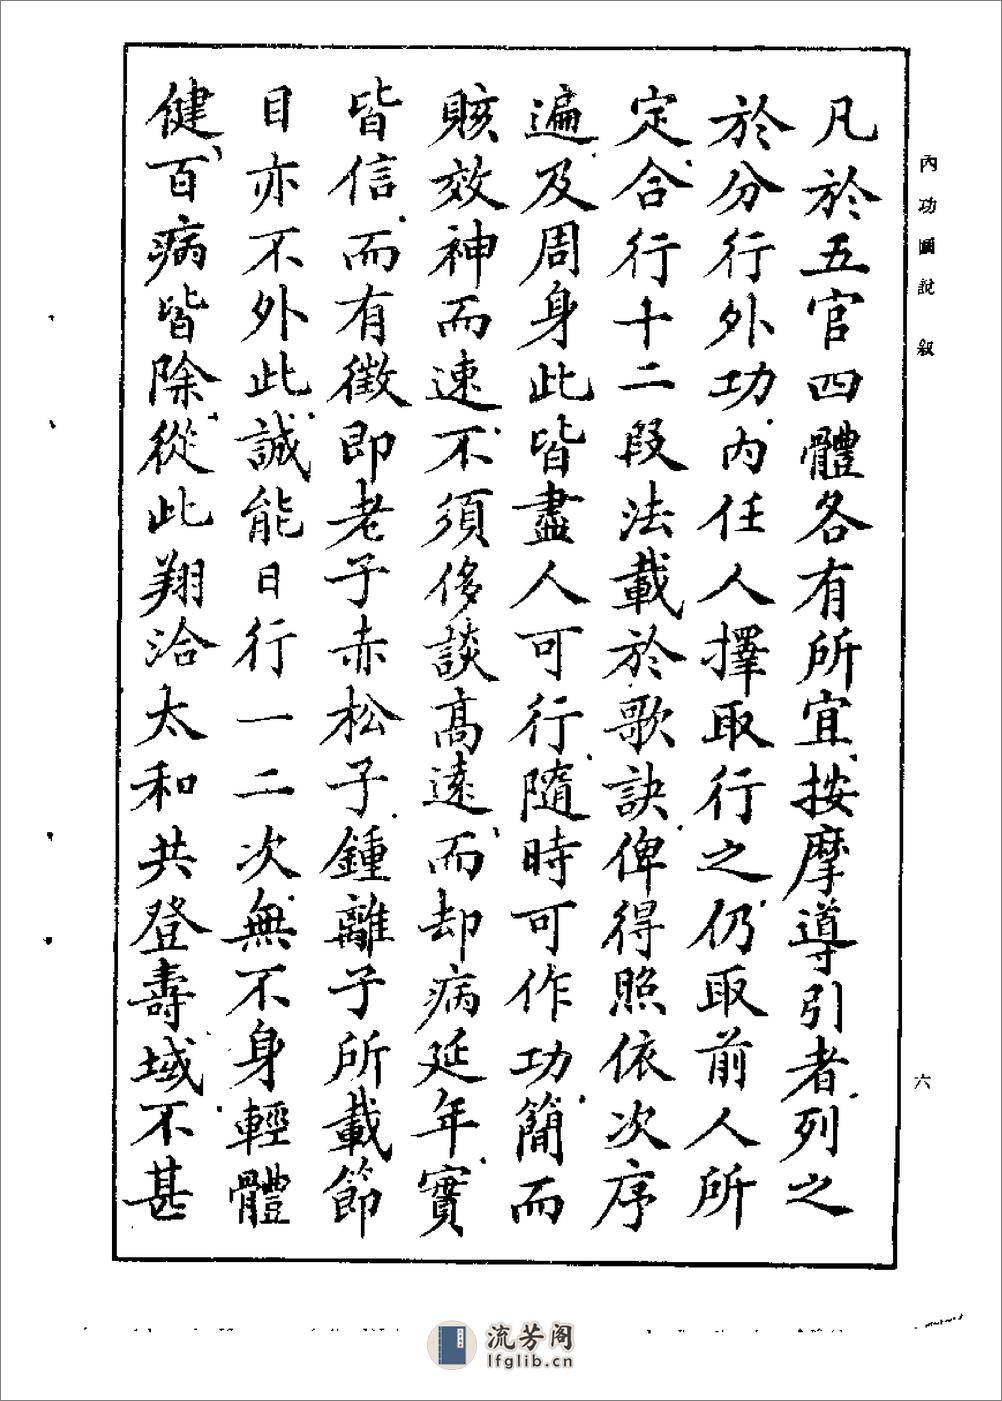 內功圖說 叙
六
凡於五官四體各有所宜按摩導引者列之
於分行外功內任人擇取行之仍取前人所
定合行十二段法載於歌訣俾得照依次序
遍及周身此皆盡人可行隨時可作功簡而
賅效神而速不須侈談高遠而却病延年實
皆信而有徵即老子赤松子鍾離子所載節
目亦不外此誠能日行一二次無不身輕體
健百病皆除從此翔洽太和共登壽域不甚
流芳阁
lfglib.cn